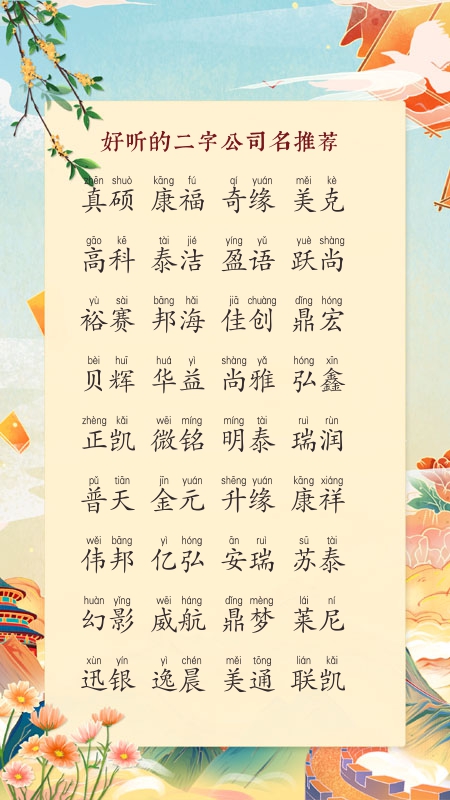 好听的二字公司名推荐
zhēn shuò kāng fú qí yuán měi kè
真硕 康福 奇缘 美克
gāo kē tài jié yíng yǔ yuè shàng
高科 泰洁 盈语 跃尚
yù sài bāng hǎi jiā chuàng dǐng hóng
裕赛 邦海 佳创 鼎宏
bèi huī huá yì shàng yǎ hóng xīn
贝辉 华益 尚雅 弘鑫
zhèng kǎi wēi míng míng tài ruì rùn
正凯 微铭 明泰 瑞润
pǔ tiān jīn yuán shēng yuán kāng xiáng
普天 金元 升缘 康祥
wěi bāng yì hóng ān ruì sū tài
伟邦 亿弘 安瑞 苏泰
huàn yǐng wēi háng dǐng mèng lái ní
幻影 威航 鼎梦 莱尼
xùn yín yì chén měi tōng lián kǎi
迅银 逸晨 美通 联凯